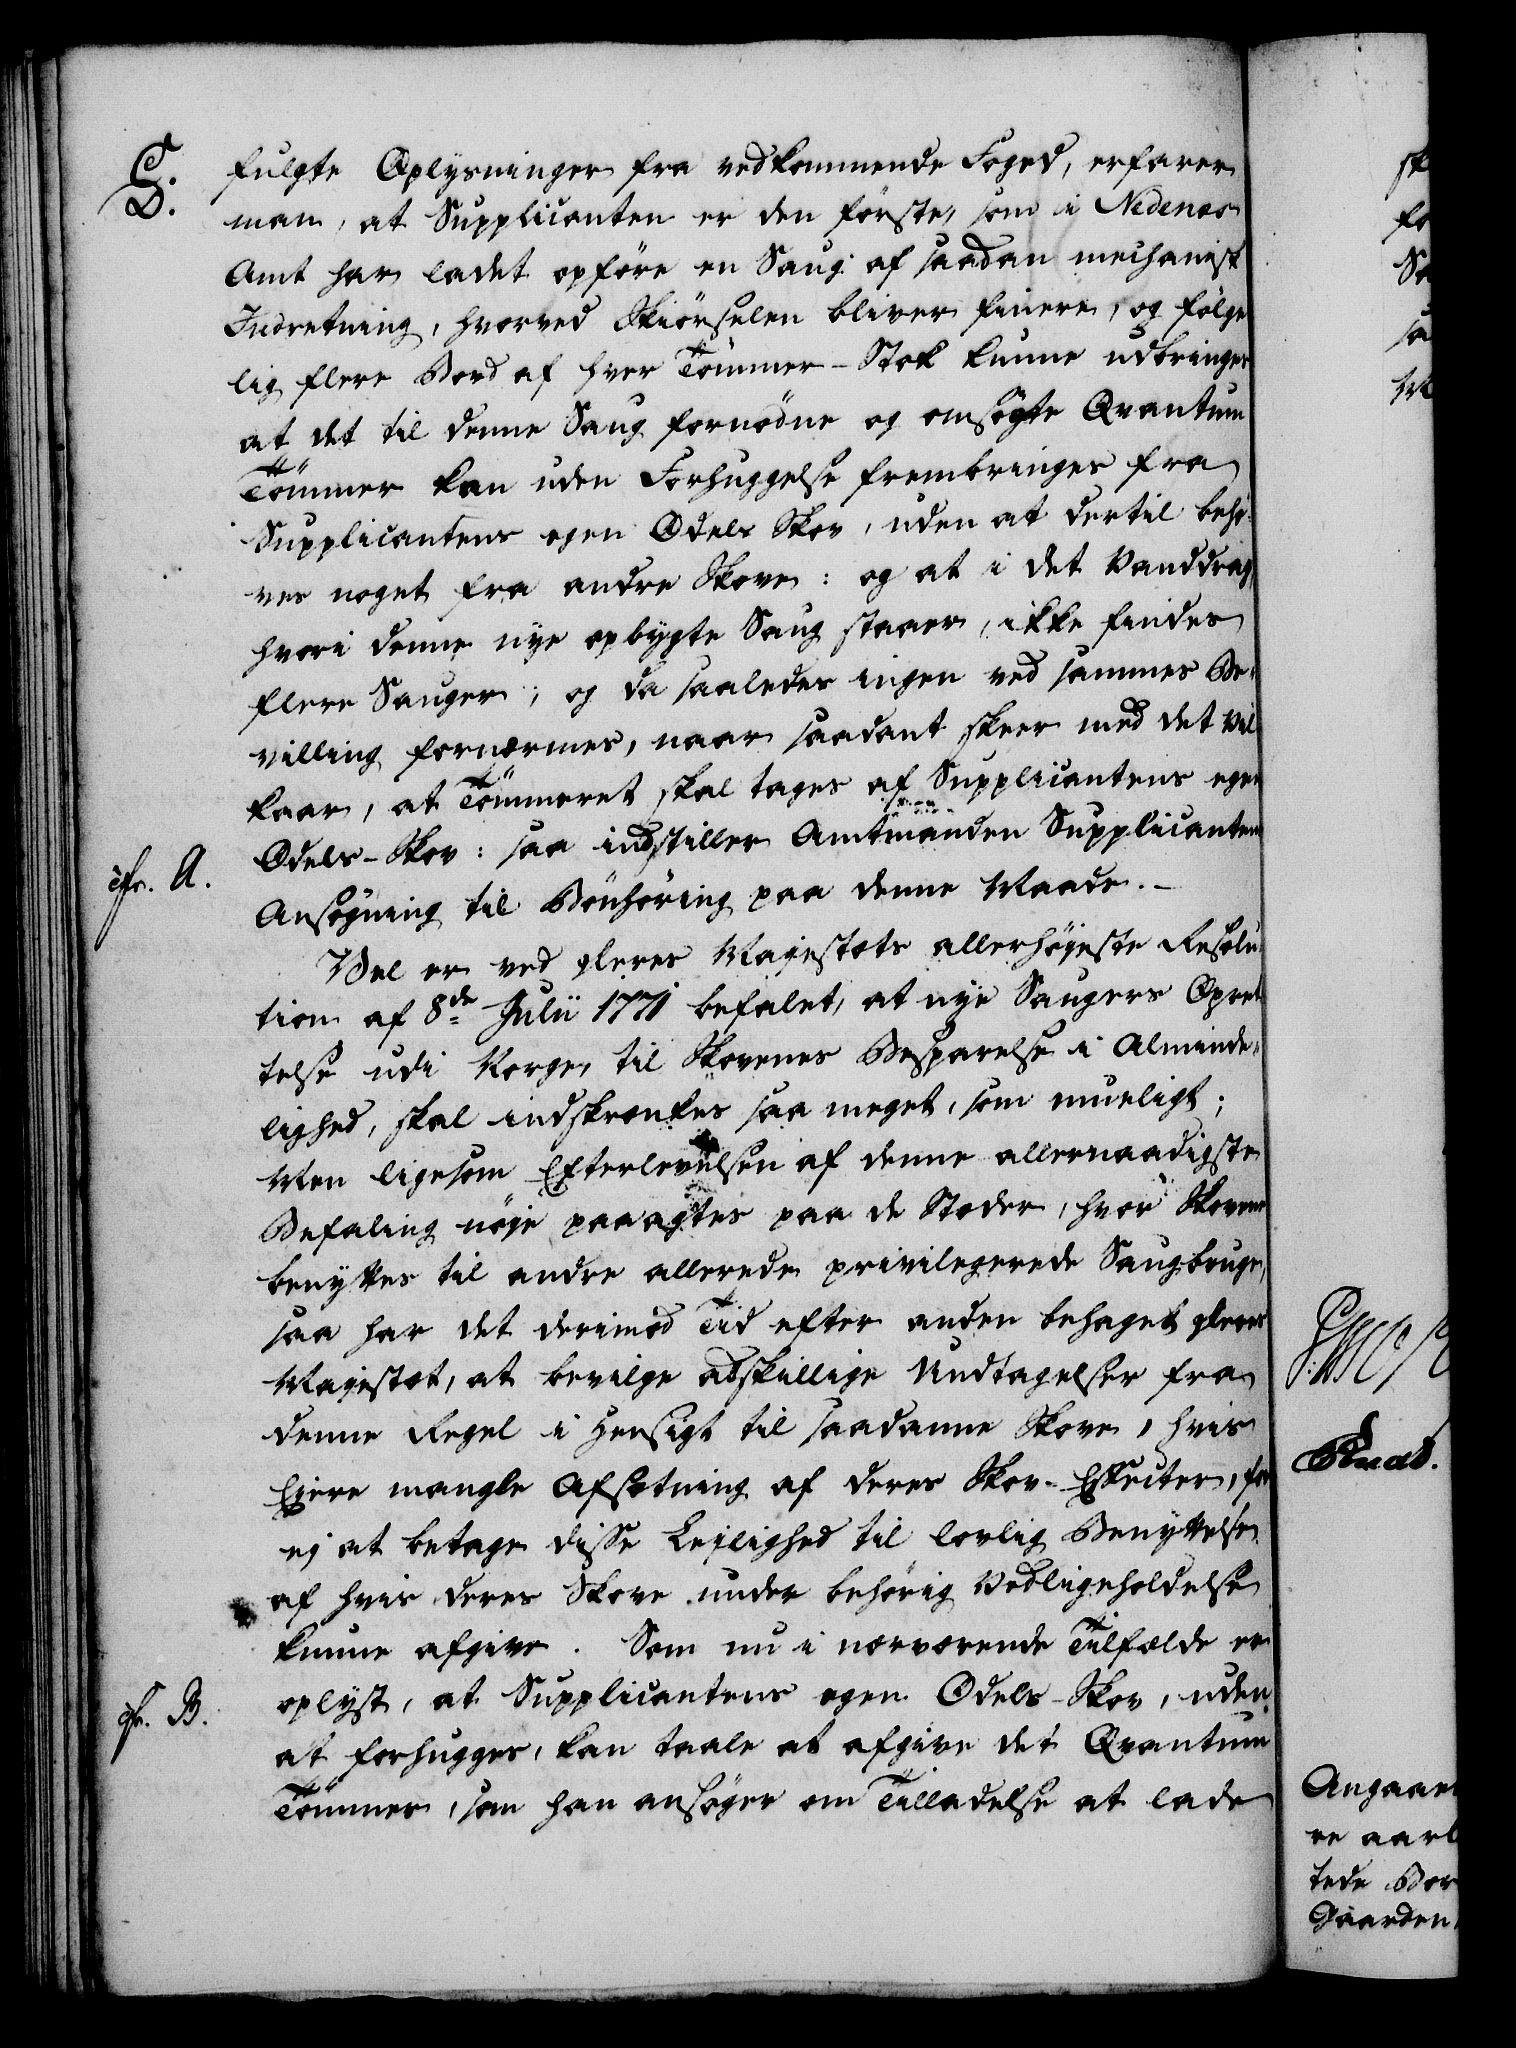 C.
D.
fulgte Oplysninger fra vedkommende Foged, erfarer
man, at Supplicanten er den förste, som i Nedenes
Amt har ladet opföre en Saug af saadan mechanisk
Indretning, hvorved Skiörselen bliver finere, og fölge
lig flere Bord af hver Tömmer-Stok kunne udbringes
at det til denne Saug fornödne og omsögte Qvantum
Tömmer kan uden Forhuggelse frembringes fra
Supplicantens egen Odels Skov, uden at dertil behö-
ves noget fra andre Skove: og at i det Vanddrag,
hvori denne nye opbygte Saug staaer, ikke findes
flere Sauger; og da saaledes ingen ved sammes Be-
villing fornærmes, naar saadant skeer med det Vil
kaar, at Tömmeret skal tages af Supplicantens egen
Odels-Skov: saa indstiller Amtmanden Supplicantens
cfr. A.
Ansögning til Bönhöring paa denne Maade.-
Vel er ved Deres Majestæts allerhöjeste Resolu
tion af 8de Julii 1771 befalet, at nye Saugers Opret
telse udi Norge, til Skovenes Besparelse i Alminde-
lighed, skal indskrænkes saa meget, som mueligt;
Men ligesom Efterlevelsen af denne allernaadigste
Befaling nöje paaagtes paa de Stæder, hvor Skovene
benyttes til andre allerede privilegerede Saugbruge,
saa har det derimod Tid efter anden behaget Deres
Majestæt, at bevilge adskillige Undtagelser fra
denne Regel i Hensigt til saadanne Skove, hvis
Eiere mangle Afsætning af deres Skov-Effecter, for
ej at betage disse Lejlighed til lovlig Benyttelse
af hvis deres Skove under behörig Vedligeholdelse
kunne afgive. Som nu i nærværende Tilfælde er
oplyst, at Supplicantens egen Odels-Skov, uden
cfr. B.
at forhugges, kan taale at afgive det Qvantum
Tömmer, som han ansöger om Tilladelse at lade
sk
fo
Sa
sa
Angaaen
re aarl
tede Bor
Gaarden